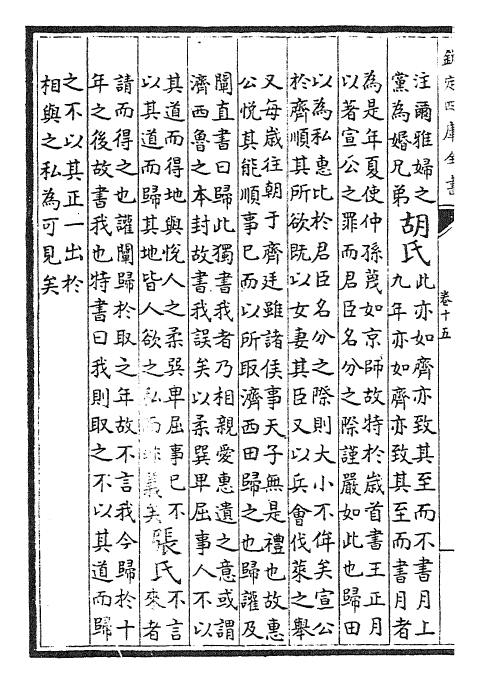 欽定四庫全書
卷十五
注爾雅婦之
黨為婚兄弟
胡氏
此亦如齊亦致其至而不書月上
九年亦如齊亦致其至而書月者
為是年夏使仲孫蔑如京師故特於歲首書王正月
以著宣公之罪而君臣名分之際謹嚴如此也歸田
以為私惠比於君臣名分之際則大小不侔矣宣公
於齊順其所欲既以女妻其臣又以兵會伐萊之舉
又每歲往朝于齊廷雖諸侯事天子無是禮也故惠
公悅其能順事已而以所取濟西田歸之也歸讙及
闡直書曰歸此獨書我者乃相親愛惠遺之意或謂
濟西魯之本封故書我誤矣以柔巽卑屈事人不以
其道而得地與悅人之柔巽卑屈事已不
以其道而歸其地皆人欲之私而非義矣
張氏
不言
來者
請而得之也讙闡歸於取之年故不言我今歸於十
年之後故書我也特書曰我則取之不以其道而歸
之不以其正一出於
相與之私為可見矣